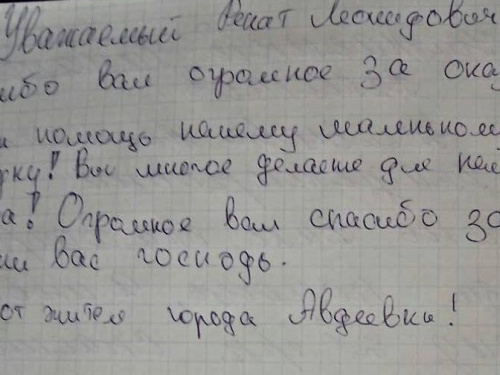 Уважаемый Ренат Леонидович
ибо вам огромное за ока
помощь нашему маленьком
рку! Вы многое делаете для на
а! Огромное вам спасибо за
ни вас господь.
от жителя города Авдеевки!